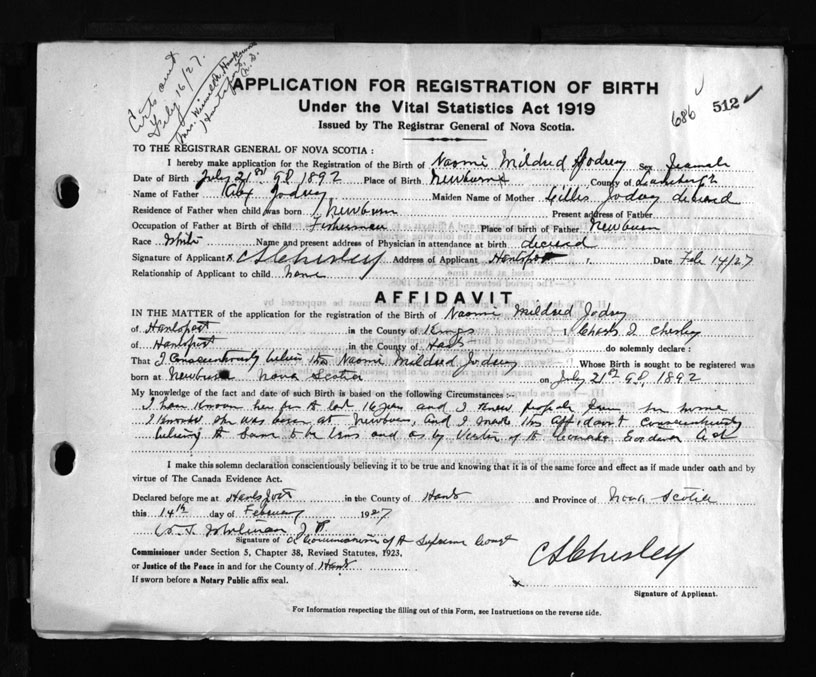 Certs out
July 16/27.
Mrs.
Hantsport
N.S.
APPLICATION FOR REGISTRATION OF BIRTH
Under the Vital Statistics Act 1919
686 512
Issued by The Registrar General of Nova Scotia.
TO THE REGISTRAR GENERAL OF NOVA SCOTIA :
I hereby make application for the Registration of the Birth of Naomi Mildred Jodrey Sex Female
Date of Birth July 21st AD 1892 Place of Birth Newburn County of
Name of Father Jodrey Maiden Name of Mother Jodrey
Residence of Father when child was born Newburn Present address of Father
Occupation of Father at Birth of child Fisherman Place of birth of Father Newburn
Race White Name and present address of Physician in attendance at birth
Signature of Applicant x C S Chesley Address of Applicant Hantsport Date Feb 14/27
Relationship of Applicant to child none
AFFIDAVIT
IN THE MATTER of the application for the registration of the Birth of Naomi Mildred Jodrey
of Hantsport in the County of Kings I, Chesley
of Hantsport in the County of Hants do solemnly declare :
That I Conscientiously believe this Naomi Mildred Jodrey Whose Birth is sought to be registered was
born at Newburn Nova Scotia on July 21st AD, 1892
My knowledge of the fact and date of such Birth is based on the following Circumstances :-
I have known her for the last 16 years and I knew people
she was born at Newburn, and I make this Affidavit conscientiously
believing the same to be true and as by Virtue of the Canada Evidence Act
I make this solemn declaration conscientiously believing it to be true and knowing that it is of the same force and effect as if made under oath and by
virtue of The Canada Evidence Act.
Declared before me at Hantsport in the County of Hants and Province of Nova Scotia
this 14th day of February 1927
J.P.
Signature of a Commissioner of the Supreme Court
Commissioner under Section 5, Chapter 38, Revised Statutes, 1923,
or Justice of the Peace in and for the County of Hants
C S Chesley
If sworn before a Notary Public affix seal.
x
Signature of Applicant.
For Information respecting the filling out of this Form, see Instructions on the reverse side.